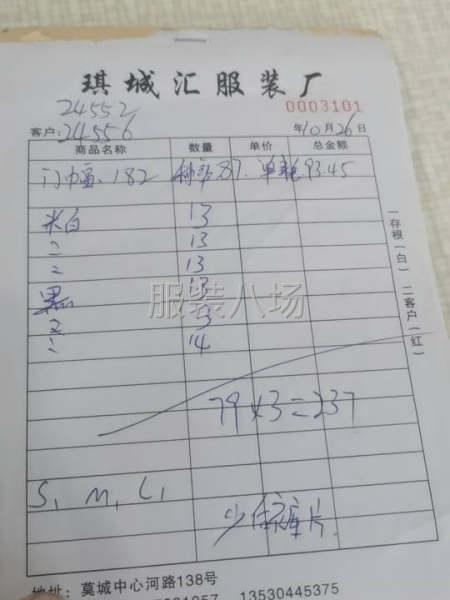 琪城汇服装厂
24552
0003101
客户:24556
年10月26日
商品名称 数量 单价 总金额
门巾富、182 87. 单毛93.45
米白 13
〃 13
〃 13
黑 13
13
〃 14
79×3=237
S, M, L,
少 裤片
一存根(白) 二客户(红)
服装八场
地址:莫城中心河路138号
13530445375